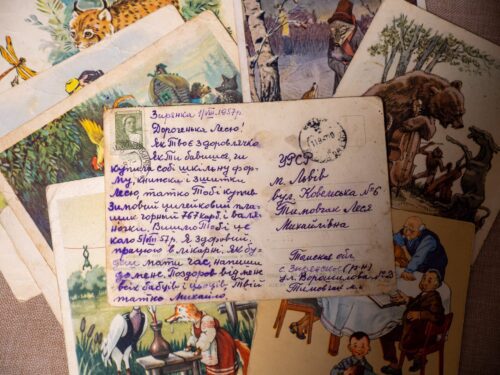 Зирянка 1/VIII 1957 р.
Дорогенька Лесю!
Як твоє здоровлячко
Як Ти бавишся, чи
купила собі шкільну фор-
му, книжки і зшитки
Лесю, татко Тобі купив
Зимовий цигейковий пла-
щик чорний 767 карб і валя-
ночки. Вишлю Тобі це
коло 5/VIII 57 р. Я здоровий,
працюю в лікарні. Як бу-
деш мати час, напиши
до мене. Поздоров від мене
всіх бабусів і цьоців, Твій
татко Михайло
УРСР
м. Львів
вул. Ковельська №6
Тимовчак Леся
Михайлівна
Томская обл.
с. Зырянское (р-н)
ул. Ворошилова
Тимовчак М.